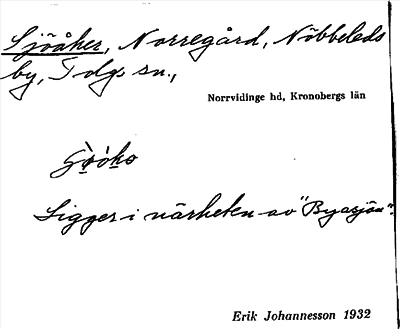 Sjöåker, Norregård, Nöbbeleds
by, Tolgs sn.,
Norrvidinge hd, Kronobergs län
Ligger i närheten av "Byasjön".
Erik Johannesson 1932